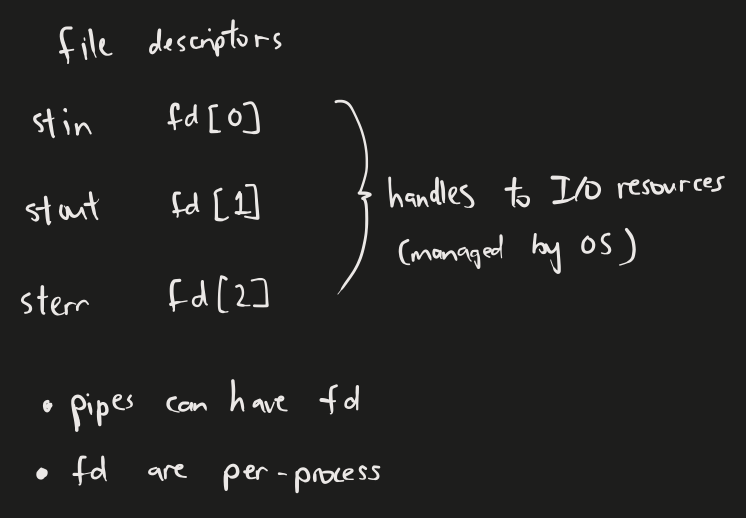 file descriptors
stin fd[0]
stout fd[1]
sterr fd[2]
handles to I/O resources
(managed by OS)
• pipes can have fd
• fd are per-process